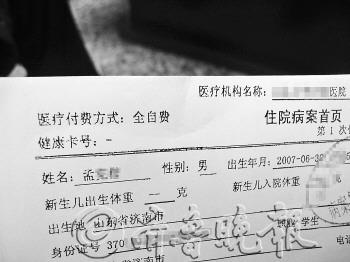 医疗机构名称： 医院
医疗付费方式：全自费
住院病案首页
健康卡号：－
第 1 次
姓名：孟 性别：男 出生年月：2007-06-30
新生儿出生体重 － 克 新生儿入院体重
出生地 山东省济南市
学生
身份证号 370
省济南市
齐鲁晚报